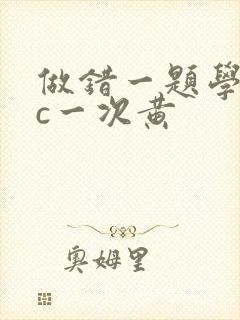 做錯一題學
c一次黃
奧姆里